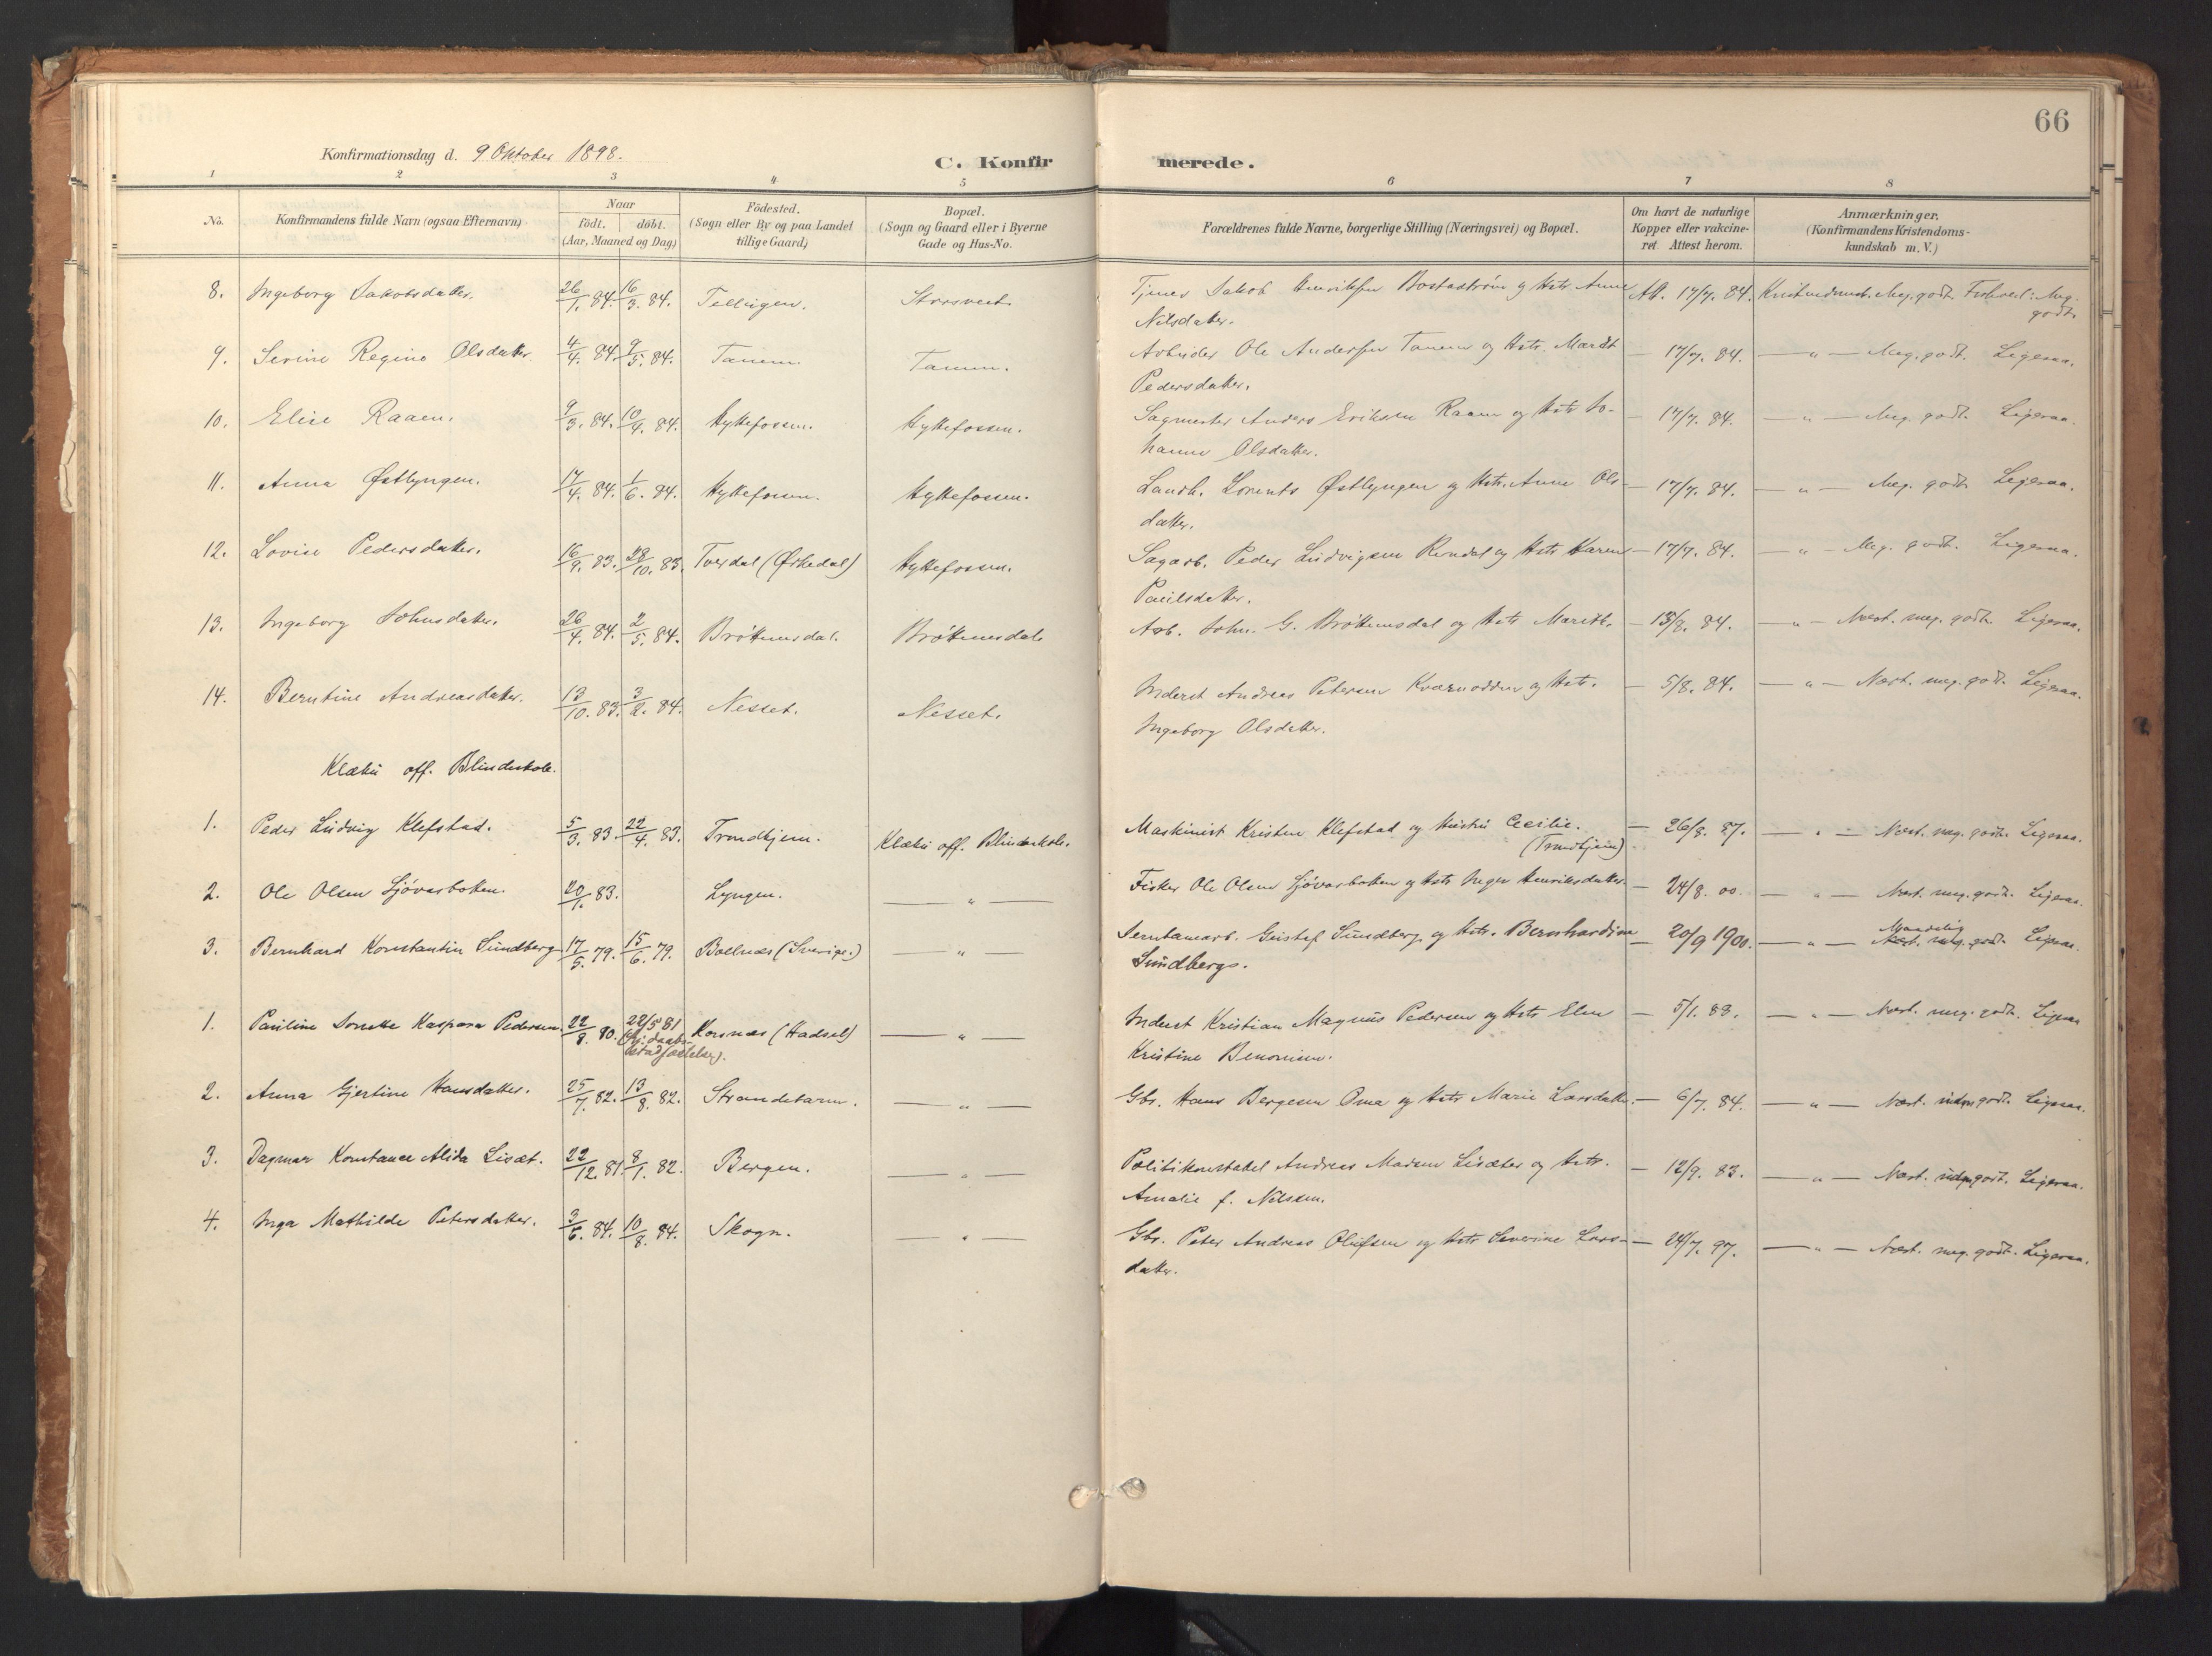 66
Konfirmationsdag d. 9 Oktober 1898.
C. Konfirmerede.
1 2 3 4 5 6 7 8
No.
Konfirmandens fulde Navn (ogsaa Efternavn)
Naar
födt. döbt.
(Aar, Maaned og Dag)
Födested.
(Sogn eller By og paa Landet
tillige Gaard)
Bopæl.
(Sogn og Gaard eller i Byerne
Gade og Hus-No.
Forældrenes fulde Navne, borgerlige Stilling (Næringsvei) og Bopæl.
Om havt de naturlige
Kopper eller vakcine-
ret. Attest herom.
Anmærkninger.
(Konfirmandens Kristendoms-
kundskab m. V.)
8. Ingeborg Jakobsdatter. 26/1. 84. 16/3. 84. Tellugen. Storsveet. Tjener Jakob Henriksen og Hstr. Anne 17/7. 84. Meg. godt. Forhold: Meg.
Nilsdatter. godt.
9. Serine Regine Olsdatter. 4/4. 84. 9/5. 84. Tanem. Tanem. Arbeider Ole Andersen Tanem og Hstr. Maredt — 17/7. 84. — " — Meg. godt. Ligesaa.
Pedersdatter.
10. Elise Raaen. 9/3. 84. 10/4. 84. Hyttefossen. Hyttefossen. Sagmester Anders Eriksen Raaen og Hstr. Jo- — 17/7. 84. — " — Meg. godt. Ligesaa.
hanne Olsdatter.
11. Anna Østlyngen. 17/4. 84. 1/6. 84. Hyttefossen. Hyttefossen. Landh. Lorents Østlyngen og Hstr. Anne Ols- — 17/7. 84. — " — Meg. godt. Ligesaa.
datter.
12. Lovise Pedersdatter. 16/9. 83. 28/10. 83. (Ørkedal) Hyttefossen. Sagarb. Peder Ludvigsen Rendal og Hstr. Karen — 17/7. 84. — " — Meg. godt. Ligesaa.
Paulsdatter.
13. Ingeborg Johnsdatter. 26/4. 84. 2/5. 84. Bröttemsdal. Bröttemsdal. Arb. John. G. Bröttemsdal og Hstr. Marith. — 13/8. 84. — " — Næst. meg. godt. Ligesaa.
14. Berntine Andreasdatter. 13/10. 83. 3/2. 84. Nesset. Nesset. Inderst Andreas Petersen Kværnodden og Hstr. — 5/8. 84. — " — Næst. meg. godt. Ligesaa.
Ingeborg Olsdatter.
Klæbu off. Blindeskole.
1. Peder Ludvig Klefstad. 5/3. 83. 22/4. 83. Trondhjem. Klæbu off. Blindeskole. Maskinist Kristen Klefstad og Hustru Cecilie. — 26/8. 87. — " — Næst. meg. godt. Ligesaa.
(Trondhjem)
2. Ole Olsen Sjövarbotten. 20/1. 83. Lyngen. — " — Fisker Ole Olsen Sjövarbotten og Hstr. Inger Henriksdatter. — 24/8. 00. — " — Næst. meg. godt. Ligesaa.
3. Bernhard Konstantin Sundberg 17/5. 79. 15/6. 79. Bollnæs (Sverige.) — " — Gustaf Sundberg og Hstr. Bernhardina — 20/9 1900. — " — Næst. meg. godt. Ligesaa.
Sundbergs.
1. Pauline Kaspara Pedersen. 22/8. 80. 22/5 81 Korsnæs (Hadsel) — " — Inderst Kristian Magnus Pedersen og Hstr. Elen — 5/1. 83. — " — Næst. meg. godt. Ligesaa
Kristine Benonisen.
2. Anna Gjertine Hansdatter. 25/7. 82. 13/8. 82. Strandebarm. — " — Gbr. Hans Bergesen Oma og Hstr. Marie Larsdatter. — 6/7. 84. — " — Næst. godt. Ligesaa.
3. Dagmar Konstance Alida Lisæt. 22/12. 81. 8/1. 82. Bergen. — " — Politikonstabel Andreas Madsen Lisæter og Hstr. — 12/9. 83. — " — Næst. godt. Ligesaa.
Amalie f. Nilssen.
4. Inga Mathilde Petersdatter. 3/6. 84. 10/8. 84. Skogn. — " — Gbr. Peter Andreas Olufsen og Hstr. Severine Lars- — 24/7. 97. — " — Næst. meg. godt. Ligesaa.
datter.